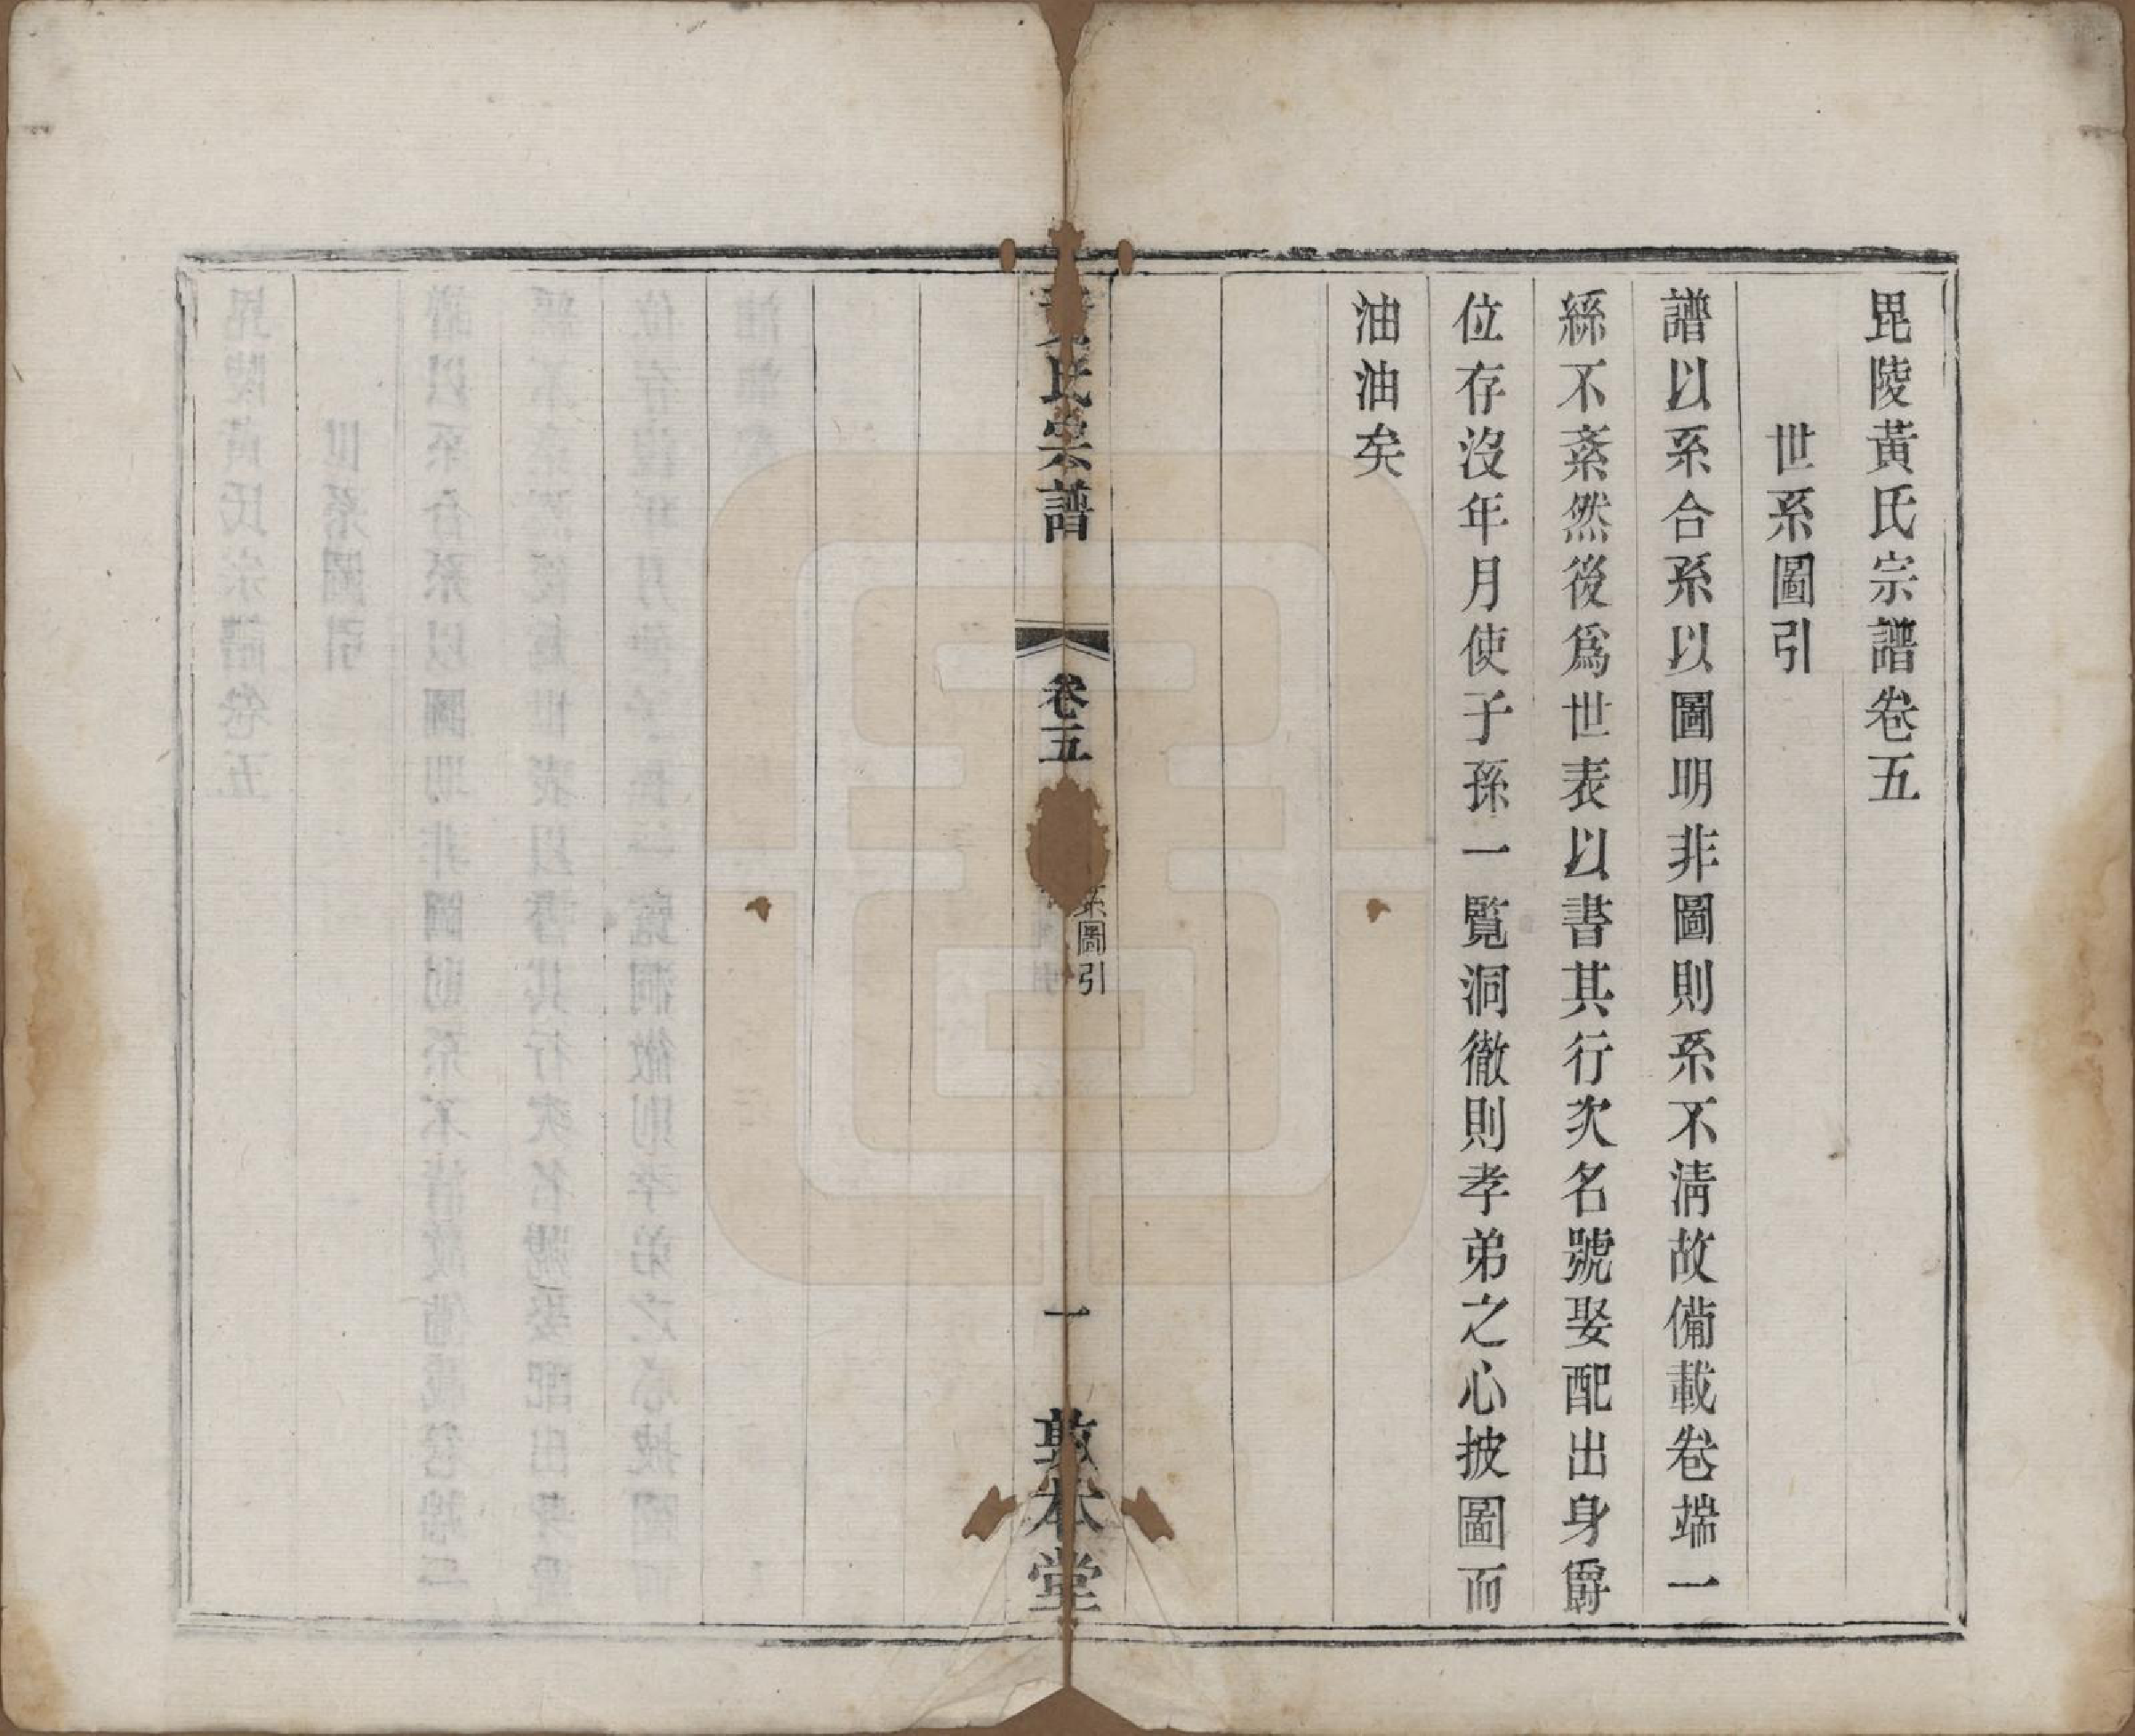 毘陵黃氏宗譜卷五
世系圖引
譜以系合系以圖明非圖則系不淸故備載卷端一
綵不紊然後爲世表以書其行次名號娶配出身爵
位存沒年月使子孫一覽洞徹則孝弟之心披圖而
油油矣
氏宗譜
卷五
系圖引
一
敦本堂